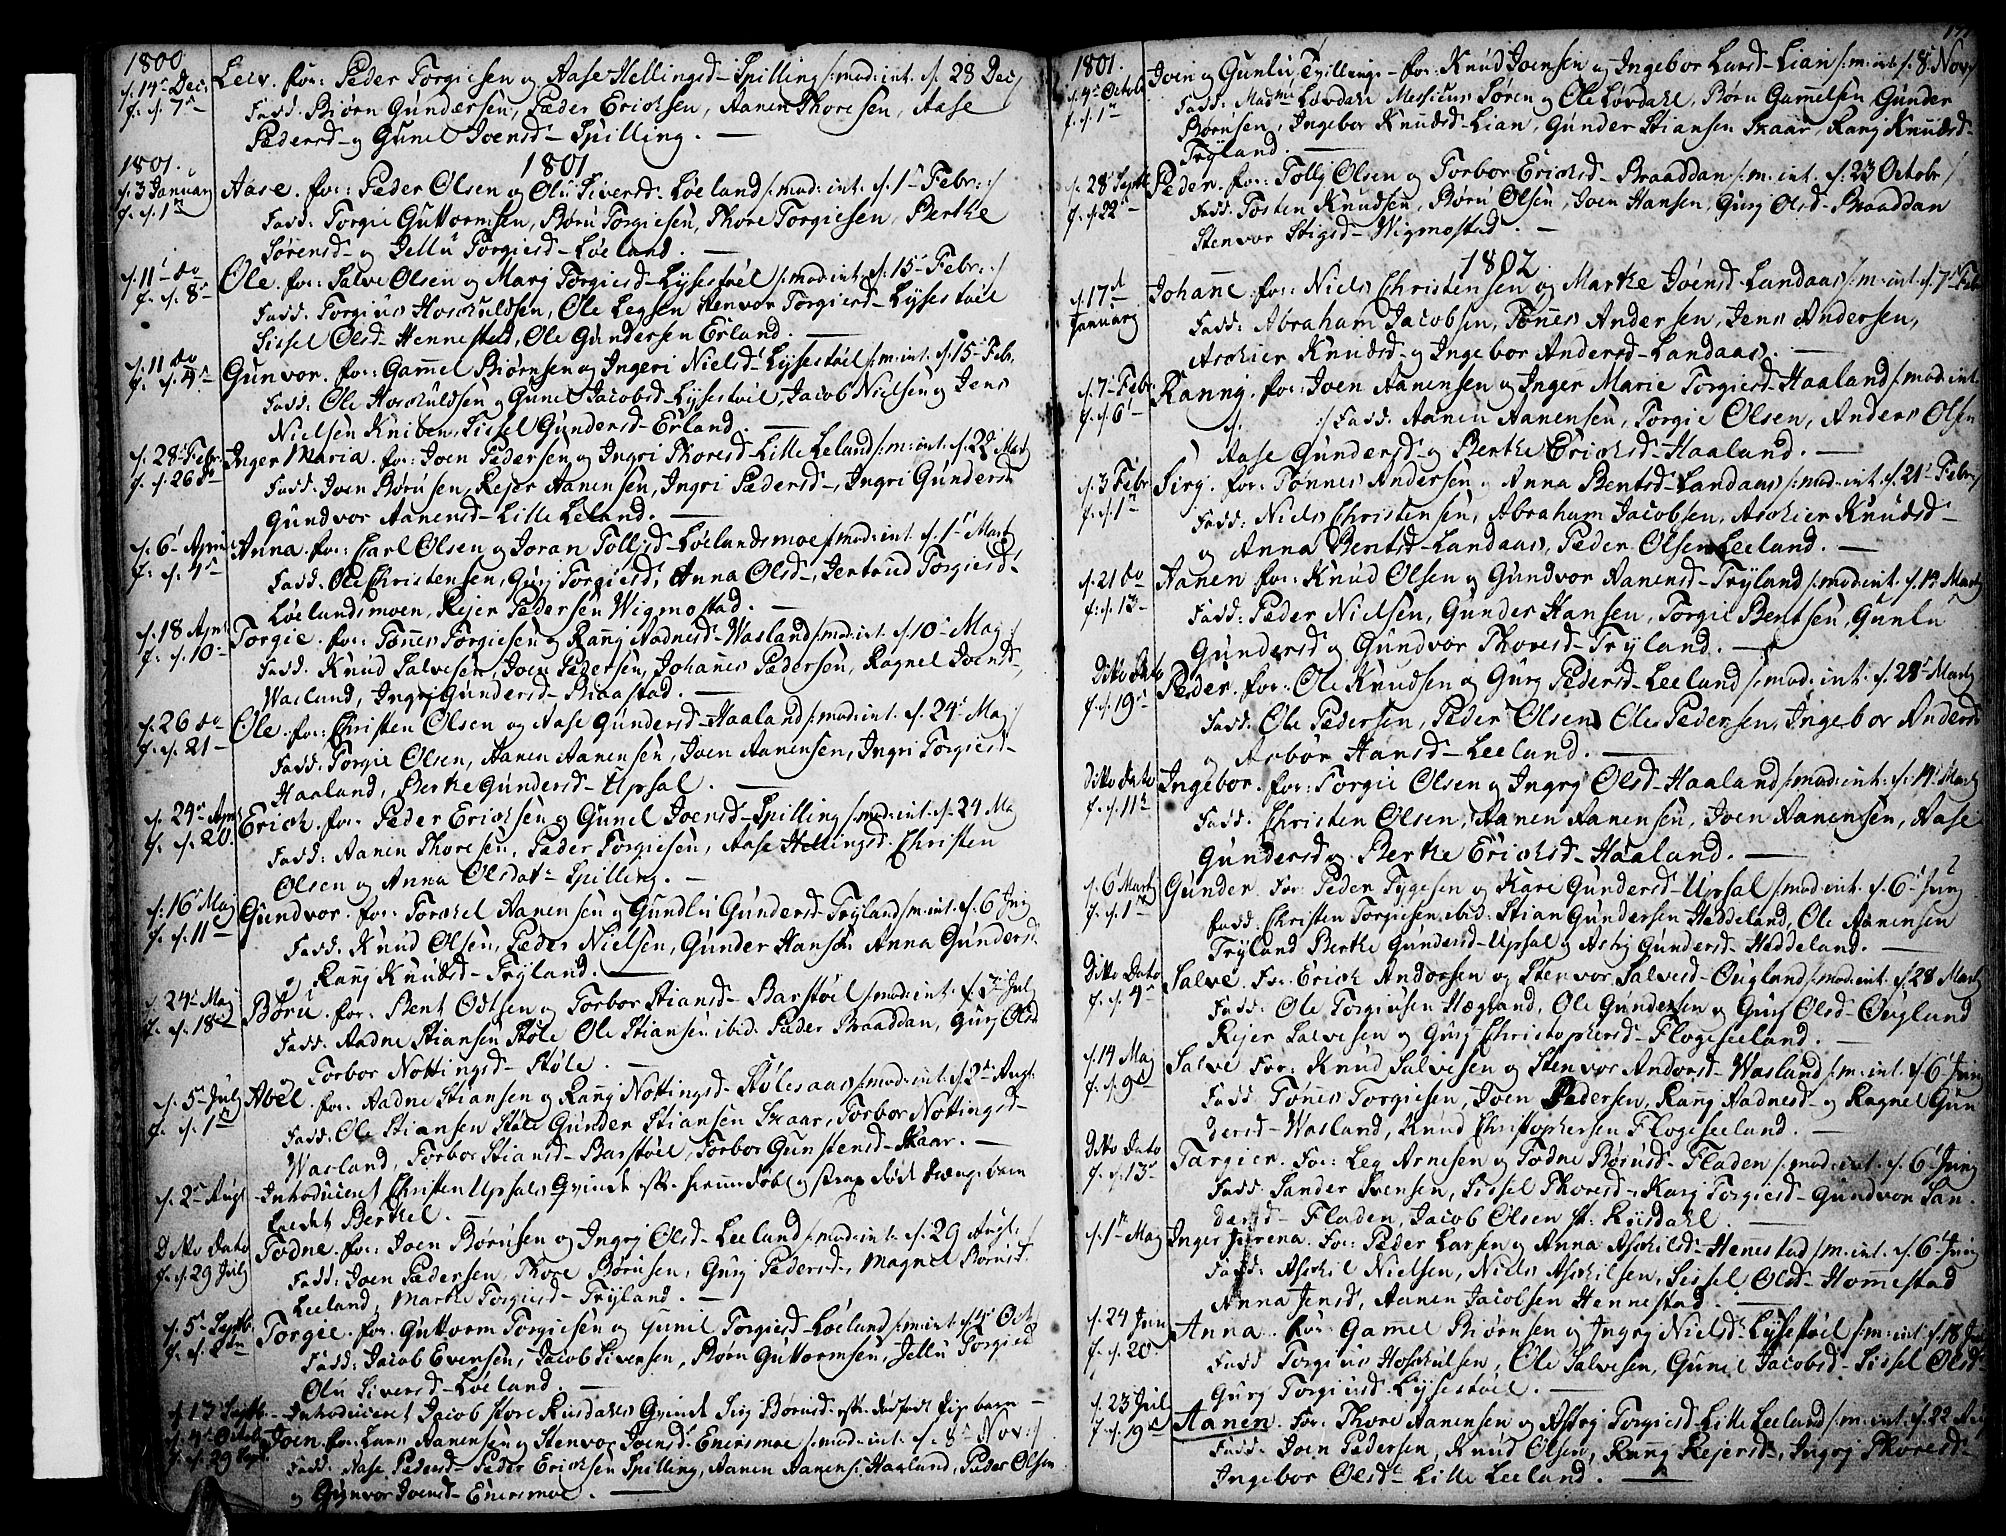 1800
d. 14de Dec. Leev. for: Peder Torgiesen og Aase Hellingsd. Spilling /: mod: int. d. 28 Dec:/
f. d. 7de Fadd: Biørn Gundersen, Peder Erichsen, Aanen Thoresen, Aase
Pedersd. og Gunel Joensd. Spilling.
1801. 1801
d. 3 Januarj Aase. for: Peder Olsen og Olu Siversd. Løeland /: mod: int. d. 1 Febr:/
f. d. 1 Fadd: Torgie Guttormsen, Børu Torgiesen, Thore Torgiesen, Berthe
Sørensd. og Jellu Torgiesd. Løeland.
d. 11 do Ole. for: Salve Olsen og Marj Torgiesd. Lyssestøel /: mod: int. d. 15 Febr:/
f. d. 8 Fadd: Torgius Hoschuldsen, Ole Legsen Stenvor Torgiesd. Lyssestøel
Sissel Olsd. Hennestad, Ole Gundersen Erland.
d. 11 do Gunvor. for: Gamel Biørnsen og Ingeri Nielsd. Lyssestøel /: m: int. d. 15 Feb.
f. d. 4 Fadd: Ole Hoschuldsen og Gunel Jacobsd. Lyssestøel, Jacob Nielsen og Jens
Nielsen Kniben, Sissel Gundersd. Erland.
d. 28 Febr. Inger Maria. for: Joen Pedersen og Ingri Thoresd. Lille Leland /: m: int. d. 22 Mart
f. d. 26 Fadd: Joen Børusen, Rejer Aanensen, Ingri Pedersd., Ingri Gundersd.
Gundvor Aanensd. Lille Leland.
d. 6 April Anna. for: Carl Olsen og Joran Tollisd. Løelandsmoe /: mod: int. d. 1 Martj
f. d. 4 Fadd: Ole Christensen, Gurj Torgiesd., Anna Olsd., Jertrud Torgiesd.
Løelandsmoen, Rejer Pedersen Wigmostad.
d. 18 April Torgie. for: Tønnes Torgiesen og Rannj Aadnesd. Wasland /: mod: int. d. 10 Maj:/
f. d. 10 Fadd: Knud Salvesen, Joen Pedersen, Johannes Pedersen, Ragnel Joensd.,
Wasland, Ingrj Gundersd. Braastad.
d. 26 do Ole. for: Christen Olsen og Aase Gundersd. Haaland /: mod: int. d. 24 Maj:/
f. d. 21 Fadd: Torgie Olsen, Aanen Aanensen, Joen Aanensen, Ingri Torgiesd.
Haaland, Berthe Gundersd. Upsal.
d. 24 April Erich. for: Peder Erichsen og Gunel Joensd. Spilling /: mod: int. d. 24 Maj
f. d. 20. Fadd: Aanen Thoresen, Peder Torgiesen, Aase Hellingsd. Christen
Olsen og Anna Olsdat. Spilling.
d. 16 Maj Gundvor. for: Torchel Aanensen og Gundlu Gundersd. Tryland /: m: int. d. 6 Junj
f. d. 11 Fadd: Knud Olsen, Peder Nielsen, Gunder Hansen Anna Gundersd.
og Rannj Knudsd. Tryland.
d. 24 Maj Børu. for: Bent Odtsen og Torbor Stiansd. Barstøel /: mod: int. d. 5 Julj
f. d. 18 Fadd: Aadne Stiansen Støle Ole Stiansen ibid. Peder Braaddan, Gurj Olsd.
og Torbor Nottingsd. Støle.
d. 5 Julj Abel. for: Aadne Stiansen og Rannj Nottingsd. Stølesaas /: mod: int: d. 2 Aug:
f. d. 1 Fadd: Ole Stiansen Støle Gunder Stiansen Skaar, Torbor Nottingsd.
Wasland, Torbor Stiansd. Barstøel, Torbor Gunstensd. Skaar.
d. 2 Aug: Introduceret Christen Upsals Qvinde efter hiemmedøbt og strax døde Drengebarn
kaldet Berthel.
Ditto Dato Todne. for: Joen Børusen og Ingrj Olsd. Leeland /: mod: int. d. 29 Aug:/
f. d. 29 Julj Fadd: Joen Pedersen, Thore Børusen, Gurj Pedersd., Magnel Børusd.
Leeland, Marthe Torgiusd. Tryland.
d. 5 Septb. Torgie. for: Guttorm Torgiesen og Gunil Torgiesd. Løeland /: m: int. d. 4 Oct.
Fadd: Jacob Evensen, Jacob Siversen, Børn Guttormsen, Jellu Torgiesd.
Olu Siversd. Løeland
d. 13 Septb. Introduceret Jacob Store Riisdahls Qvinde Sirj Børusd. efter dødfødt Pigebarn
d. 4 Octob. Joen. for: Lars Aanensen og Stenvor Joensd. Enersmoe /: mod: int. d. 8 Nov:/
f. d. 29 Sept. Fadd: Aase Pedersd. Peder Erichsen Spilling, Aanen Aanens: Haaland, Peder Olsen
og Gunvor Joensd. Enersmoe.
1801.
d. 4 Octob. Joen og Gunlu Tvillinge. for: Knud Joensen og Ingebor Larsd. Lian /: m: int. d. 8 Nov:/
f. d. 1 Fadd: Madme Løvdahl Messieurs Søren og Ole Løvdahl, Børn Gamelsen Gunder
Børusen, Ingebor Knudsd. Lian, Gunder Stiansen Skaar, Rang Knudsd.
Tryland.
d. 28 Septb. Peder. for: Tollj Olsen og Torbor Erichsd. Braaddan /: m: int. d. 23 Octobr:/
f. d. 22 Fadd: Tosten Knudsen, Børu Olsen, Joen Hansen, Gurj Olsd. Braaddan
Stenvor Stigsd. Wigmostad.
1802
d. 17 Januarj Johane. for: Niels Christensen og Marthe Joensd. Landaas /: m: int. d. 7 Feb
Fadd: Abraham Jacobsen, Tønes Andersen, Jens Andersen,
Aschier Knudsd. og Ingebor Andersd. Landaas.
d. 7 Febr. Rannj. for: Joen Aanensen og Inger Marie Torgiesd. Haaland /: mod: int.
f. d. 6 d. :/ Fadd: Aanen Aanensen, Torgie Olsen, Anders Olsen
Aase Gundersd. og Berthe Erichsd. Haaland.
d. 3 Febr. Sirj. for: Tønnes Andersen og Anna Bentsd. Landaas /: mod: int. d. 21 Febr:/
f. d. 1 Fadd: Niels Christensen, Abraham Jacobsen, Aschier Knudsd.
og Anna Bentsd. Landaas, Peder Olsen Leeland.
d. 21 do Aanen for: Knud Olsen og Gundvor Aanensd. Tryland /: mod: int. d. 14 Martj
f. d. 13 Fadd: Peder Nielsen, Gunder Hansen, Torgil Bentsen, Gunlu
Gundersd. og Gundvor Thoresd. Tryland.
Ditto Dato Peder. for: Ole Knudsen og Gurj Pedersd. Leeland /: mod: int. d. 28 Martj
f. d. 19 Fadd: Ole Pedersen, Peder Olsen Ole Pedersen, Ingebor Andersd.
og Asbor Hansd. Leeland.
Ditto Dato Ingebor. for: Torgie Olsen og Ingrj Olsd. Haaland /: mod: int: d. 14 Martj
f. d. 11 Fadd: Christen Olsen, Aanen Aanensen, Joen Aanensen, Aase
Gundersd. og Berthe Erichsd. Haaland.
d. 6 Martj Gunder. for: Peder Tygesen og Kari Gundersd. Upsal /: mod: int. d. 6 Junj
f. d. 1 Fadd: Christen Torgiesen ibid: Stian Gundersen Heddeland, Ole Aanensen
Tryland Berthe Gundersd. Upsal og Astrj Gundersd. Heddeland.
Ditto Dato Salve. for: Erich Andersen og Stenvor Salvesd. Øugland /: mod: int. d. 28 Martj
f. d. 4 Fadd: Ole Torgiusen Hægland, Ole Gundersen og Gurj Olsd. Øugland
Rejer Salvesen og Gurj Christophersd. Flogeseeland.
d. 14 Maj Salve for: Knud Salvesen og Stenvor Andersd. Wasland /: m: int. d. 6 Junj
f. d. 9 Fadd: Tønes Torgiesen, Joen Pedersen, Rang Aadnesd. og Ragnel Gun
dersd. Wasland, Knud Christophersen Flogeseeland.
Ditto Dato Targier. for: Leg Arnesen og Todne Børusd. Fladen /: mod: int. d. 6 Junj
f. d. 13 Fadd: Sander Svensen, Sissel Thoresd. Karj Torgiesd. Gundvor San
dersd. Fladen, Jacob Olsen St: Riisdahl.
d. 1 Maj Inger Serena. for: Peder Larsen og Anna Aschildsd. Hennestad /: m: int. d. 6 Junj
Fadd: Aschil Nielsen, Niels Aschilsen, Sissel Olsd. Hommestad
Anna Jensd., Aanen Jacobsen Hennestad.
d. 24 Jun Anna. for: Gamel Biørnsen og Ingrj Nielsd. Lyssestøel /: m: int. d. 18 Julj
f. d. 20 Fadd Torgius Hoschulsen, Ole Salvesen, Gunil Jacobsd. Sissel Olsd.
Gurj Torgiusd. Lyssestøel.
d. 23 Jul Aanen. for: Thore Aanensen og Astrj Torgiesd. Lille Leeland /: m: int. d. 22 Aug
f. d. 19 Fadd: Joen Pedersen, Knud Olsen, Rang Rejersd., Ingrj Thoresd.
Ingebor Olsd. Lille Leeland.